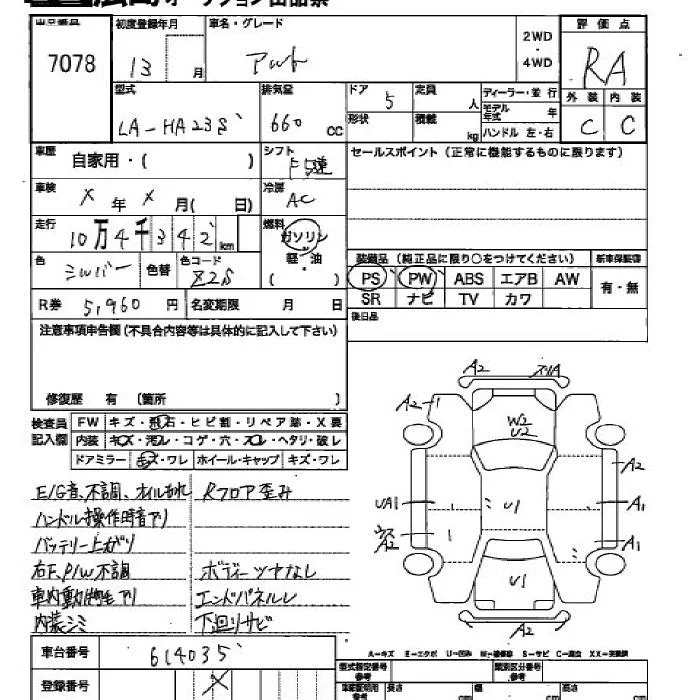 広島オークション出品票
出品番号 初度登録年月 車名・グレード 評価点
7078 13 月 アルト 2WD・4WD RA
型式 排気量 ドア 定員 ディーラー・並行 外装 内装
LA-HA23S 660 cc 5 人 モデル年式 年 C C
形状 積載 kg ハンドル 左・右
車歴 自家用・( ) シフト F5速 セールスポイント(正常に機能するものに限ります)
車検 X 年 X 月( 日) 冷房 AC
走行 10万4千342km 燃料 ガソリン・軽・油 ( )
色 シルバー 色替 色コード Z2S 装備品 (純正品に限り○をつけてください) 新車保証書
PS PW ABS エアB AW 有・無
SR ナビ TV カワ
R券 5,960 円 名変期限 月 日
後日品
注意事項申告欄(不具合内容等は具体的に記入して下さい)
修復歴 有 〔箇所 〕
検査員記入欄 FW キズ・飛石・ヒビ割・リペア跡・X要
内装 キズ・汚レ・コゲ・穴・スレ・ヘタリ・破レ
ドアミラー キズ・ワレ ホイール・キャップ キズ・ワレ
E/G音、不調、オイルもれ Rフロア歪み
ハンドル操作時音アリ
バッテリー上がり
右F.P/W不調 ボディーツヤなし
車内動物毛アリ エンドパネルレ
内装シミ 下廻りサビ
A2
A2
W2
U2
A2
UA1
U1
A1
A2
A1
U1
A2
A-キズ E-エクボ U-凹み W-補修跡 S-サビ C-腐食 XX-交換跡
車台番号 614035
登録番号 X
型式指定番号 参考 類別区分番号 参考
長さ cm 幅 cm 高さ cm